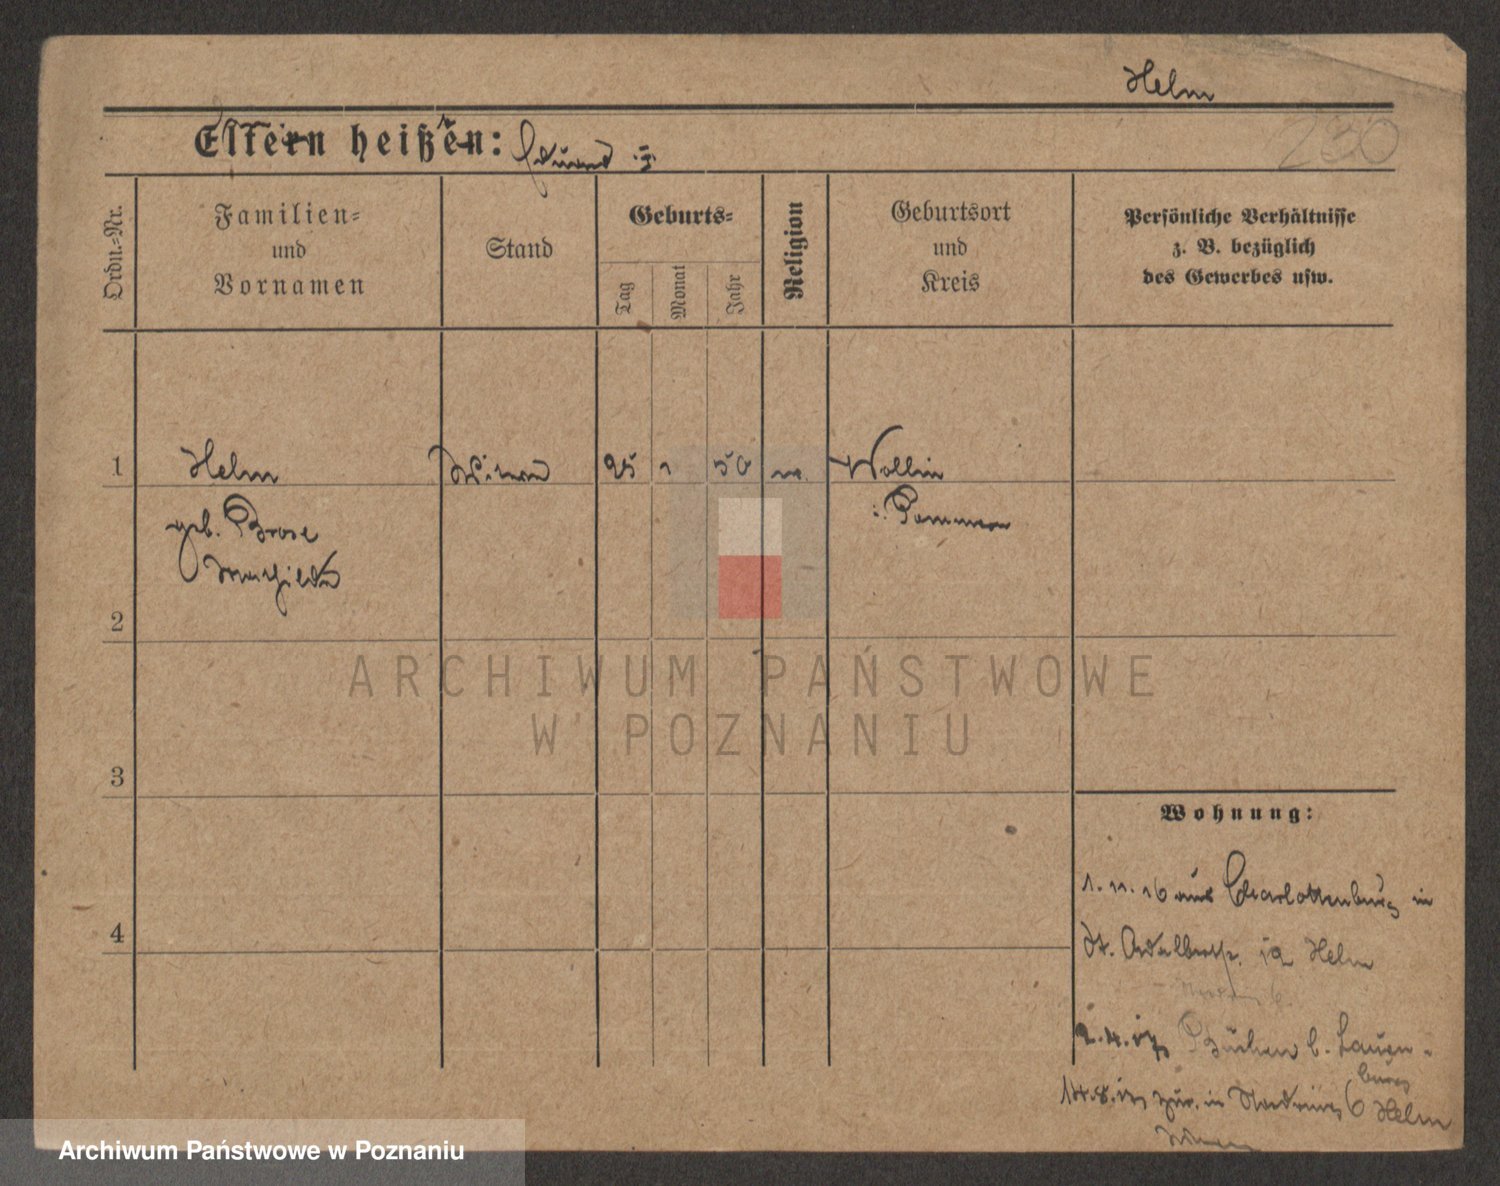 Helm
230
Eltern heißen: Eduard
Ordn.-Nr.
Familien-
und
Vornamen
Stand
Geburts-
Tag
Monat
Jahr
Religion
Geburtsort
und
Kreis
Persönliche Verhältnisse
z. B. bezüglich
des Gewerbes usw.
1
Helm
Witwe
25
1
50
Wollin
geb. Brose
i. Pommern
Mathilde
2
ARCHIWUM PAŃSTWOWE
W POZNANIU
3
Wohnung:
1. 11. 16 aus Charlottenburg in
4
St. Adalbertstr. Helm
2. 4. 17 Büchen b. Lauen-
burg
14. 8. 17 zur. in Helm
Archiwum Państwowe w Poznaniu